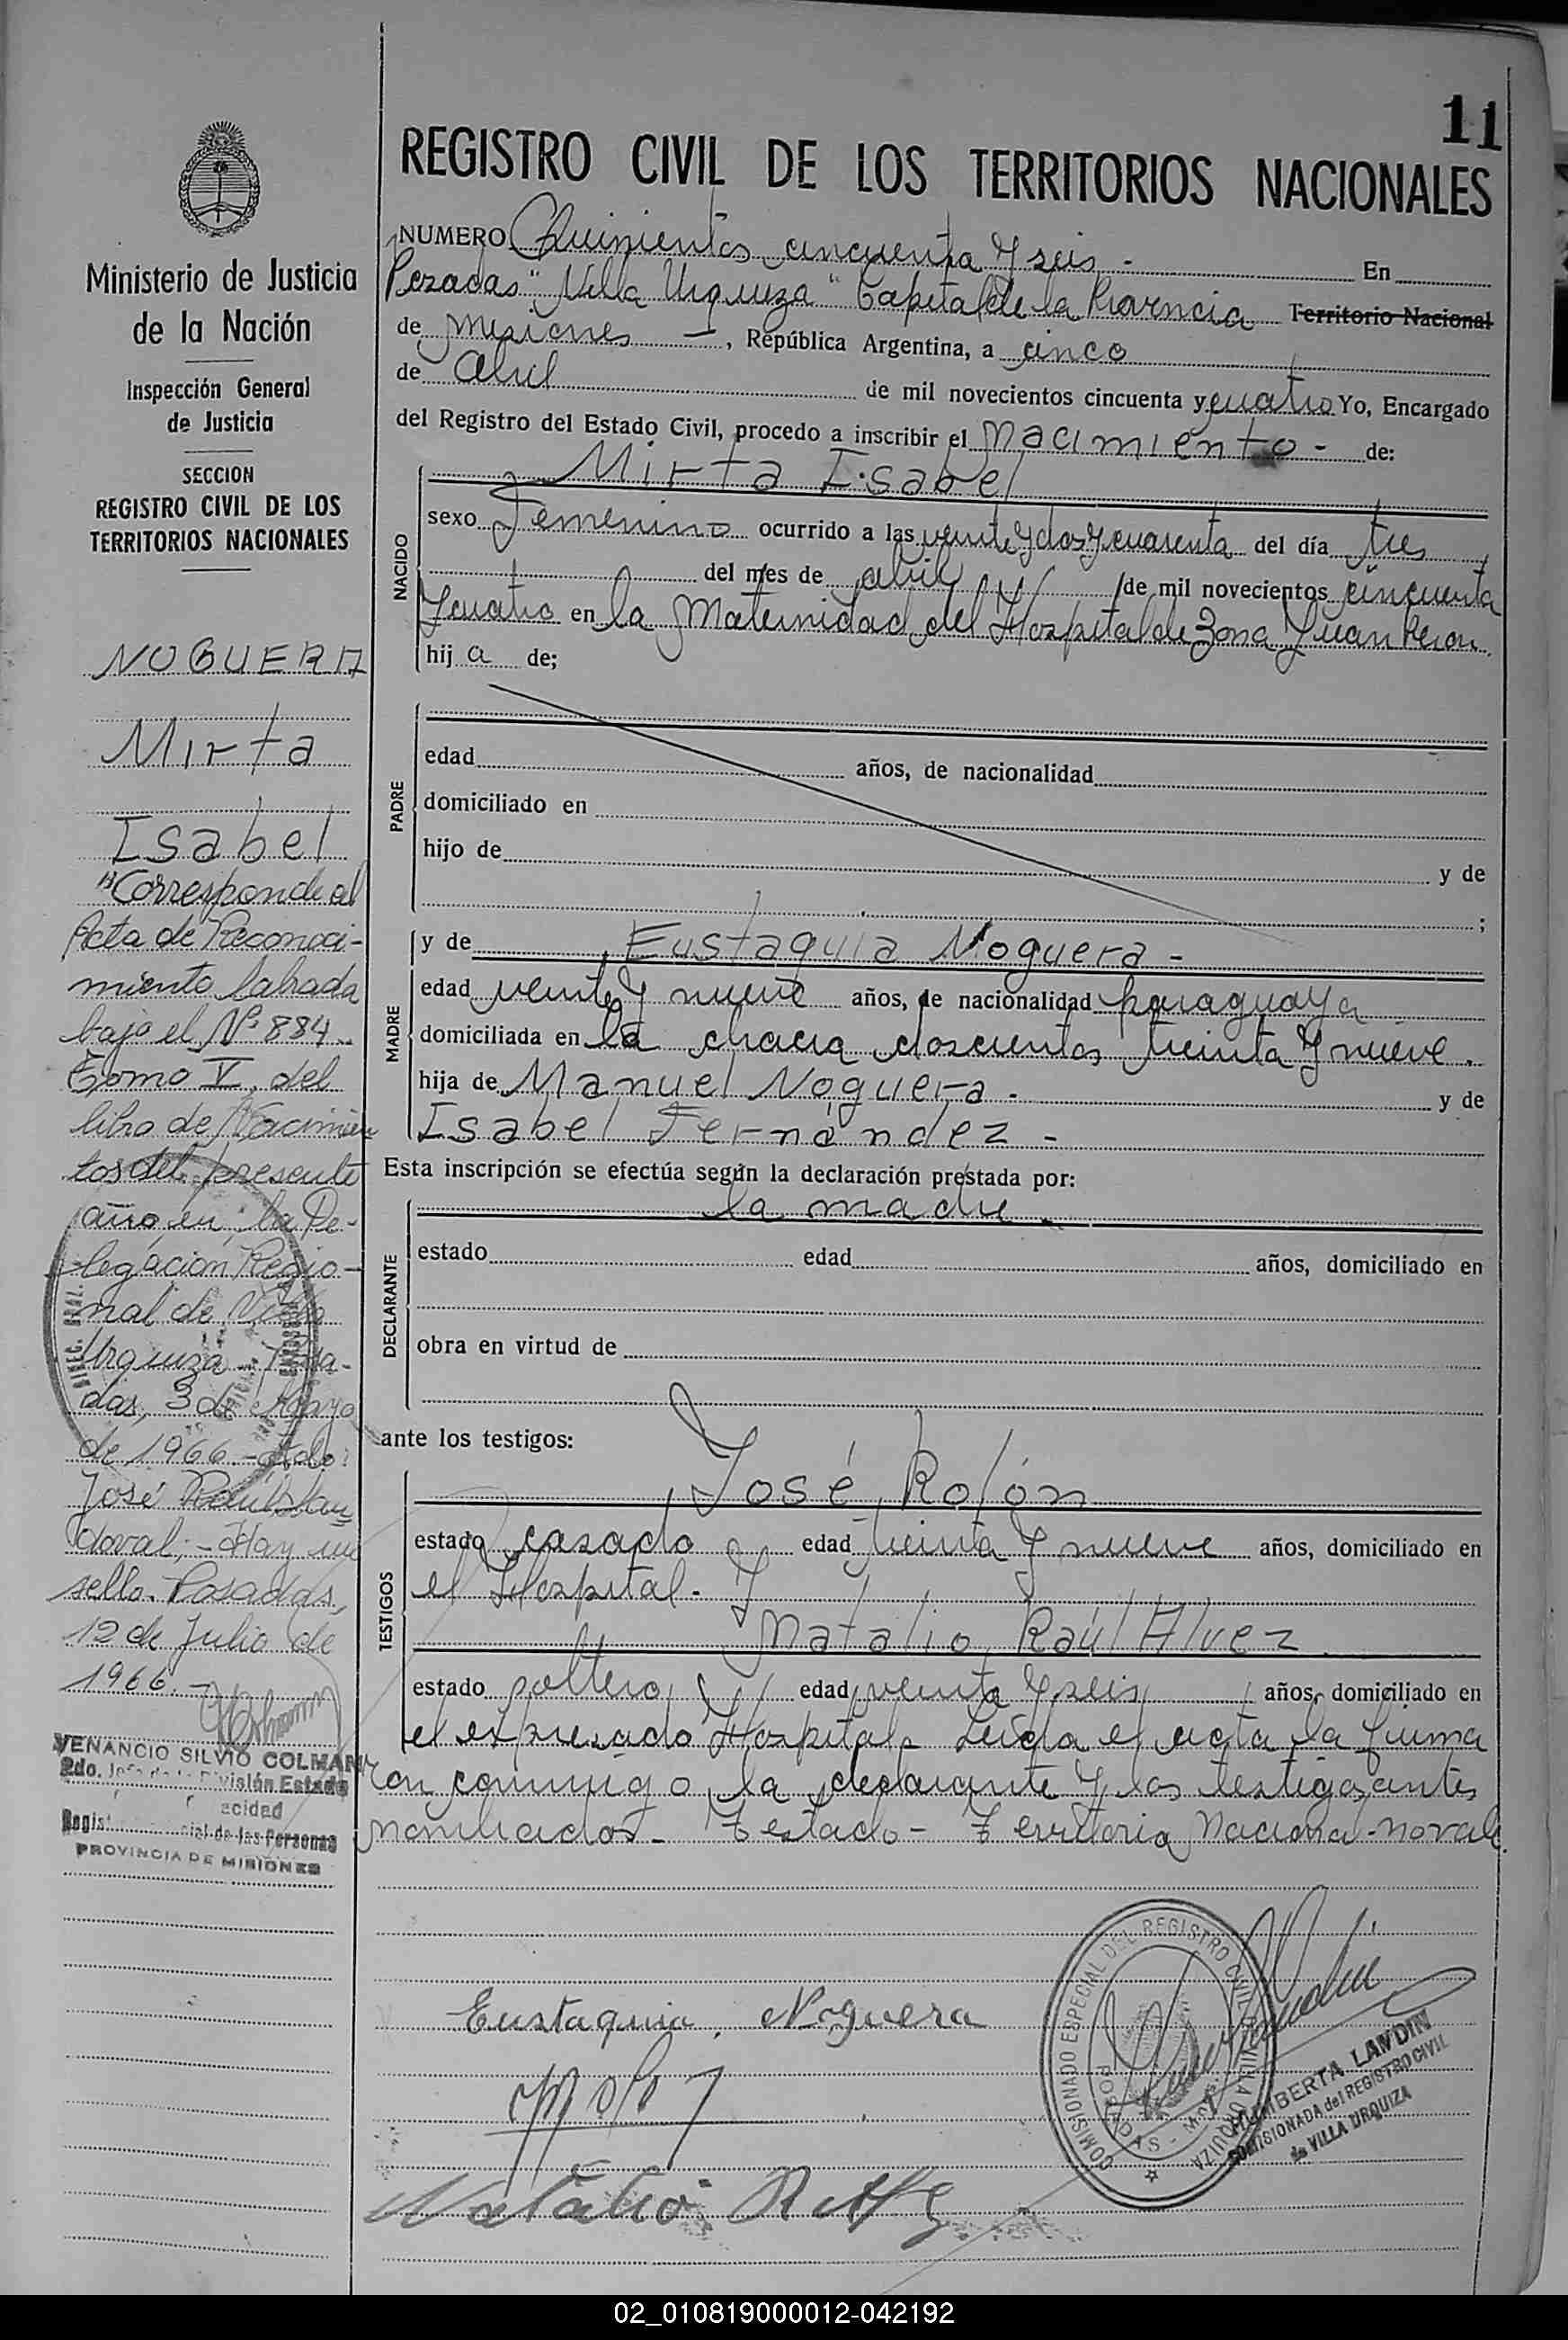 11
REGISTRO CIVIL DE LOS TERRITORIOS NACIONALES
Ministerio de Justicia
de la Nación
Inspección General
de Justicia
SECCION
REGISTRO CIVIL DE LOS
TERRITORIOS NACIONALES
NOGUERA
Mirta
Isabel
"Corresponde al
Acta de Reconoci-
miento labrada
bajo el Nº 884.
Tomo V. del
libro de Nacimien
tos del presente
año, en la De-
legación Regio-
nal de Villa
Urquiza - Posa-
das, 3 de Mayo
de 1966 - Fdo:
José Raul San
doval; - Hay un
sello. Posadas,
12 de Julio de
1966.-
VENANCIO SILVIO COLMAN
2do. Jefe de la División Estado
acidad
Regist cial de las Personas
PROVINCIA DE MISIONES
NUMERO Quinientos cincuenta y seis - En
Posadas "Villa Urquiza" Capital de la Provincia Territorio Nacional
de Misiones -, República Argentina, a cinco
de abril de mil novecientos cincuenta y cuatro Yo, Encargado
del Registro del Estado Civil, procedo a inscribir el Nacimiento - de:
NACIDO
Mirta Isabel
sexo Femenino ocurrido a las veinte y dos y cuarenta del día tres
del mes de abril de mil novecientos cincuenta
y cuatro en la Maternidad del Hospital de Zona Juan Peron
hij a de;
PADRE
edad años, de nacionalidad
domiciliado en
hijo de y de
;
MADRE
y de Eustaquia Noguera -
edad veinte y nueve años, de nacionalidad paraguaya
domiciliada en la chacra doscientos treinta y nueve.
hija de Manuel Noguera - y de
Isabel Fernández -
Esta inscripción se efectúa según la declaración prestada por:
DECLARANTE
la madre -
estado edad años, domiciliado en
obra en virtud de
ante los testigos:
TESTIGOS
José Rolón
estado casado edad treinta y nueve años, domiciliado en
el Hospital - y
Natalio Raúl Alvez
estado soltero edad veinte y seis años, domiciliado en
el expresado Hospital. Leída el acta la firma
ron conmigo la declarante y los testigos antes
nombrados - Testado - Territorio Nacional - no vale.
Eustaquia Noguera
Natalio R
COMISIONADO ESPECIAL DEL REGISTRO CIVIL VILLA URQUIZA
POSADAS
HUMBERTA LANDIN
COMISIONADA del REGISTRO CIVIL
de VILLA URQUIZA
02_010819000012-042192